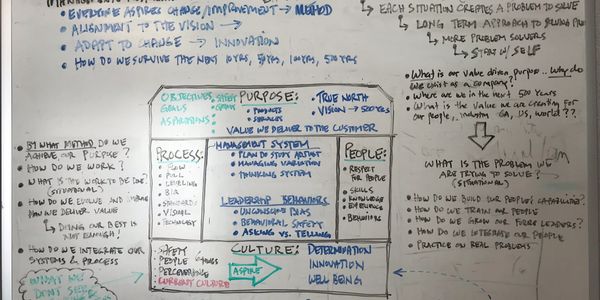 • EVERYONE ASPIRES CHANGE/IMPROVEMENT → METHOD
• ALIGNMENT TO THE VISION →
• ADAPT TO CHANGE → INNOVATION
• HOW DO WE SURVIVE THE NEXT 10 YRS, 50 YRS, 100 YRS, 500 YRS
↳ EACH SITUATION CREATES A PROBLEM TO SOLVE
↳ LONG TERM APPROACH TO SOLVING
↳ MORE PROBLEM SOLVERS
↳ START W/ SELF
• What is our value driven purpose.. Why do
we exist as a company?
• Where are we in the next 500 years
• What is the value we are creating for
our people, industry, GA, US, world???
OBJECTIVES
GOALS
ASPIRATIONS:
SAFETY
PURPOSE:
• PRODUCTS
• SERVICES
• TRUE NORTH
VISION → 500 YRS
VALUE WE DELIVER TO THE CUSTOMER
• BY WHAT METHOD DO WE
ACHIEVE OUR PURPOSE?
• HOW DO WE WORK?
• WHAT IS THE WORK TO BE DONE?
(SITUATIONAL)
• HOW DO WE EVOLVE AND
HOW WE DELIVER VALUE
↳ DOING OUR BEST IS
NOT ENOUGH!
• HOW DO WE INTEGRATE OUR
SYSTEMS & PROCESS
WHAT WE
DON'T SEE
PROCESS:
• FLOW
• PULL
• LEVELING
• BIQ
• STANDARDS
• VISUAL
• TECHNOLOGY
MANAGEMENT SYSTEM
• PLAN DO STUDY ADJUST
• MANAGING VARIATION
• THINKING SYSTEM
LEADERSHIP BEHAVIORS
• UNCONSCIOUS BIAS
• BEHAVIORAL SAFETY
• ASKING VS. TELLING
PEOPLE:
• RESPECT
FOR PEOPLE
• SKILLS
• KNOWLEDGE
• EXPERIENCE
• BEHAVIORS
WHAT IS THE PROBLEM WE
ARE TRYING TO SOLVE?
(SITUATIONAL)
• HOW DO WE BUILD OUR PEOPLE'S CAPABILITIES?
• HOW DO WE TRAIN OUR PEOPLE
• HOW DO WE GROW OUR FUTURE LEADERS?
• HOW DO WE INTEGRATE OUR PEOPLE
• PRACTICE ON REAL PROBLEMS
CULTURE:
• SAFETY
• PEOPLE
• PERSEVERING
• CURRENT CULTURE
ASPIRE
DETERMINATION
INNOVATION
WELL BEING